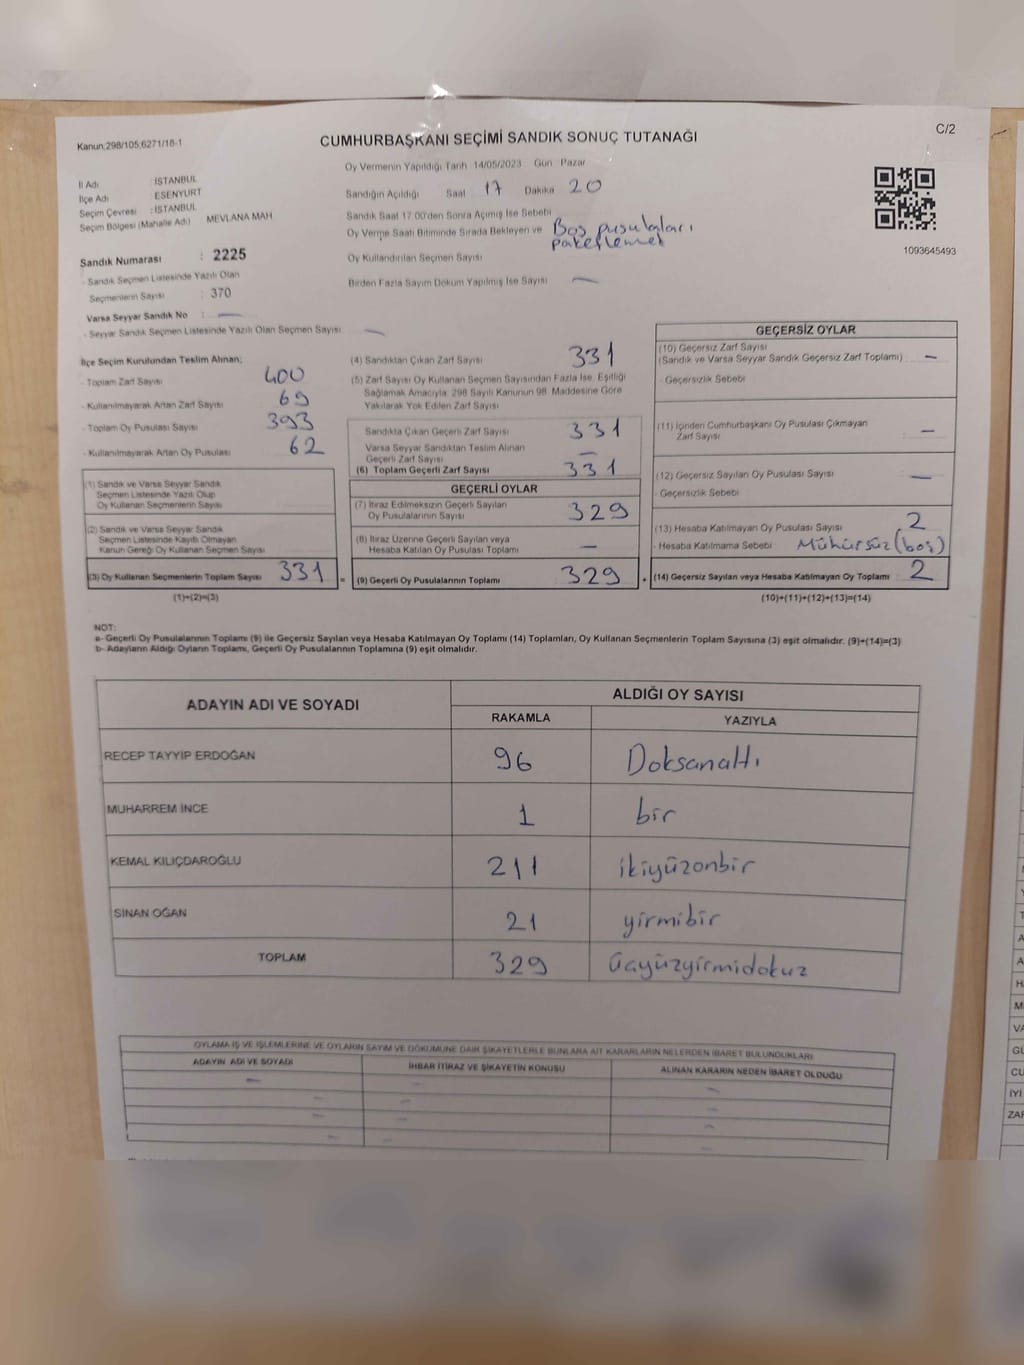 C/2
Kanun;298/105,6271/18-1
CUMHURBAŞKANI SEÇİMİ SANDIK SONUÇ TUTANAĞI
Oy Vermenin Yapıldığı Tarih 14/05/2023 Gün Pazar
İl Adı : İSTANBUL
İlçe Adı : ESENYURT
Seçim Çevresi : İSTANBUL
Seçim Bölgesi (Mahalle Adı) MEVLANA MAH
Sandığın Açıldığı Saat 17 Dakika 20
Sandık Saat 17.00'den Sonra Açmış İse Sebebi
Oy Verme Saati Bitiminde Sırada Bekleyen ve Boş pusulaları
paketlemek
Oy Kullandırılan Seçmen Sayısı
Birden Fazla Sayım Döküm Yapılmış İse Sayısı —
1093645493
Sandık Numarası : 2225
- Sandık Seçmen Listesinde Yazılı Olan
Seçmenlerin Sayısı : 370
Varsa Seyyar Sandık No : —
- Seyyar Sandık Seçmen Listesinde Yazılı Olan Seçmen Sayısı: —
İlçe Seçim Kurulundan Teslim Alınan;
- Toplam Zarf Sayısı 400
- Kullanılmayarak Artan Zarf Sayısı 69
- Toplam Oy Pusulası Sayısı 393
- Kullanılmayarak Artan Oy Pusulası 62
(1) Sandık ve Varsa Seyyar Sandık
Seçmen Listesinde Yazılı Olup
Oy Kullanan Seçmenlerin Sayısı
(2) Sandık ve Varsa Seyyar Sandık
Seçmen Listesinde Kayıtlı Olmayan
Kanun Gereği Oy Kullanan Seçmen Sayısı
(3) Oy Kullanan Seçmenlerin Toplam Sayısı 331 =
(1)+(2)=(3)
(4) Sandıktan Çıkan Zarf Sayısı 331
(5) Zarf Sayısı Oy Kullanan Seçmen Sayısından Fazla İse, Eşitliği
Sağlamak Amacıyla, 298 Sayılı Kanunun 98. Maddesine Göre
Yakılarak Yok Edilen Zarf Sayısı
Sandıkta Çıkan Geçerli Zarf Sayısı 331
Varsa Seyyar Sandıktan Teslim Alınan
Geçerli Zarf Sayısı —
(6) Toplam Geçerli Zarf Sayısı 331
GEÇERLİ OYLAR
(7) İtiraz Edilmeksizin Geçerli Sayılan
Oy Pusulalarının Sayısı 329
(8) İtiraz Üzerine Geçerli Sayılan veya
Hesaba Katılan Oy Pusulası Toplamı —
(9) Geçerli Oy Pusulalarının Toplamı 329 +
GEÇERSİZ OYLAR
(10) Geçersiz Zarf Sayısı
(Sandık ve Varsa Seyyar Sandık Geçersiz Zarf Toplamı) : —
- Geçersizlik Sebebi
(11) İçinden Cumhurbaşkanı Oy Pusulası Çıkmayan
Zarf Sayısı —
(12) Geçersiz Sayılan Oy Pusulası Sayısı —
- Geçersizlik Sebebi
(13) Hesaba Katılmayan Oy Pusulası Sayısı 2
- Hesaba Katılmama Sebebi Mühürsüz (boş)
(14) Geçersiz Sayılan veya Hesaba Katılmayan Oy Toplamı : 2
(10)+(11)+(12)+(13)=(14)
NOT:
a- Geçerli Oy Pusulalarının Toplamı (9) ile Geçersiz Sayılan veya Hesaba Katılmayan Oy Toplamı (14) Toplamları, Oy Kullanan Seçmenlerin Toplam Sayısına (3) eşit olmalıdır. (9)+(14)=(3)
b- Adayların Aldığı Oyların Toplamı, Geçerli Oy Pusulalarının Toplamına (9) eşit olmalıdır.
ADAYIN ADI VE SOYADI ALDIĞI OY SAYISI
RAKAMLA YAZIYLA
RECEP TAYYİP ERDOĞAN 96 Doksanaltı
MUHARREM İNCE 1 bir
KEMAL KILIÇDAROĞLU 211 ikiyüzonbir
SİNAN OĞAN 21 yirmibir
TOPLAM 329 üçyüzyirmidokuz
OYLAMA İŞ VE İŞLEMLERİNE VE OYLARIN SAYIM VE DÖKÜMÜNE DAİR ŞİKAYETLERLE BUNLARA AİT KARARLARIN NELERDEN İBARET BULUNDUKLARI
ADAYIN ADI VE SOYADI İHBAR İTİRAZ VE ŞİKAYETİN KONUSU ALINAN KARARIN NEDEN İBARET OLDUĞU